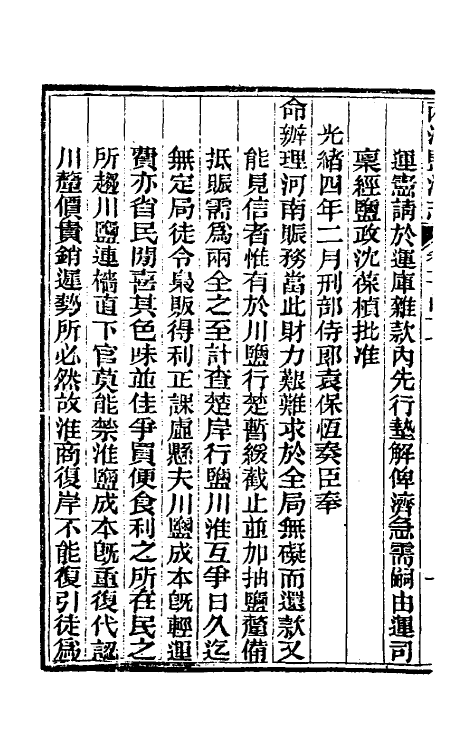 運憲請於運庫雜款內先行墊解俾濟急需嗣由運司
稟經鹽政沈葆楨批准
光緒四年二月刑部侍郎袁保恆奏臣奉
命辦理河南賑務當此財力艱難求於全局無礙而還款又
能見信者惟有於川鹽行楚暫緩截止並加抽鹽釐備
抵賑需爲兩全之至計查楚岸行鹽川淮互爭日久迄
無定局徒令梟販得利正課虛懸夫川鹽成本旣輕運
費亦省民間喜其色味並佳爭買便食利之所在民之
所趨川鹽連檣直下官莫能禁淮鹽成本旣重復代認
川釐價貴銷遲勢所必然故淮商復岸不能復引徒爲